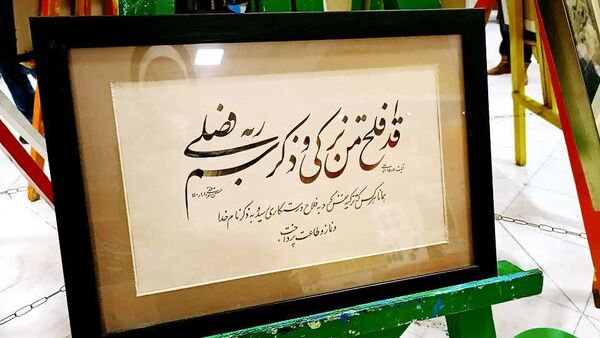 قد افلح من تزکی و ذکر اسم ربه فصلی
همانا هر کس تزکیه نفس کرد به فلاح و رستگاری رسید و به ذکر نام خدا
و نماز و طاعت پرداخت